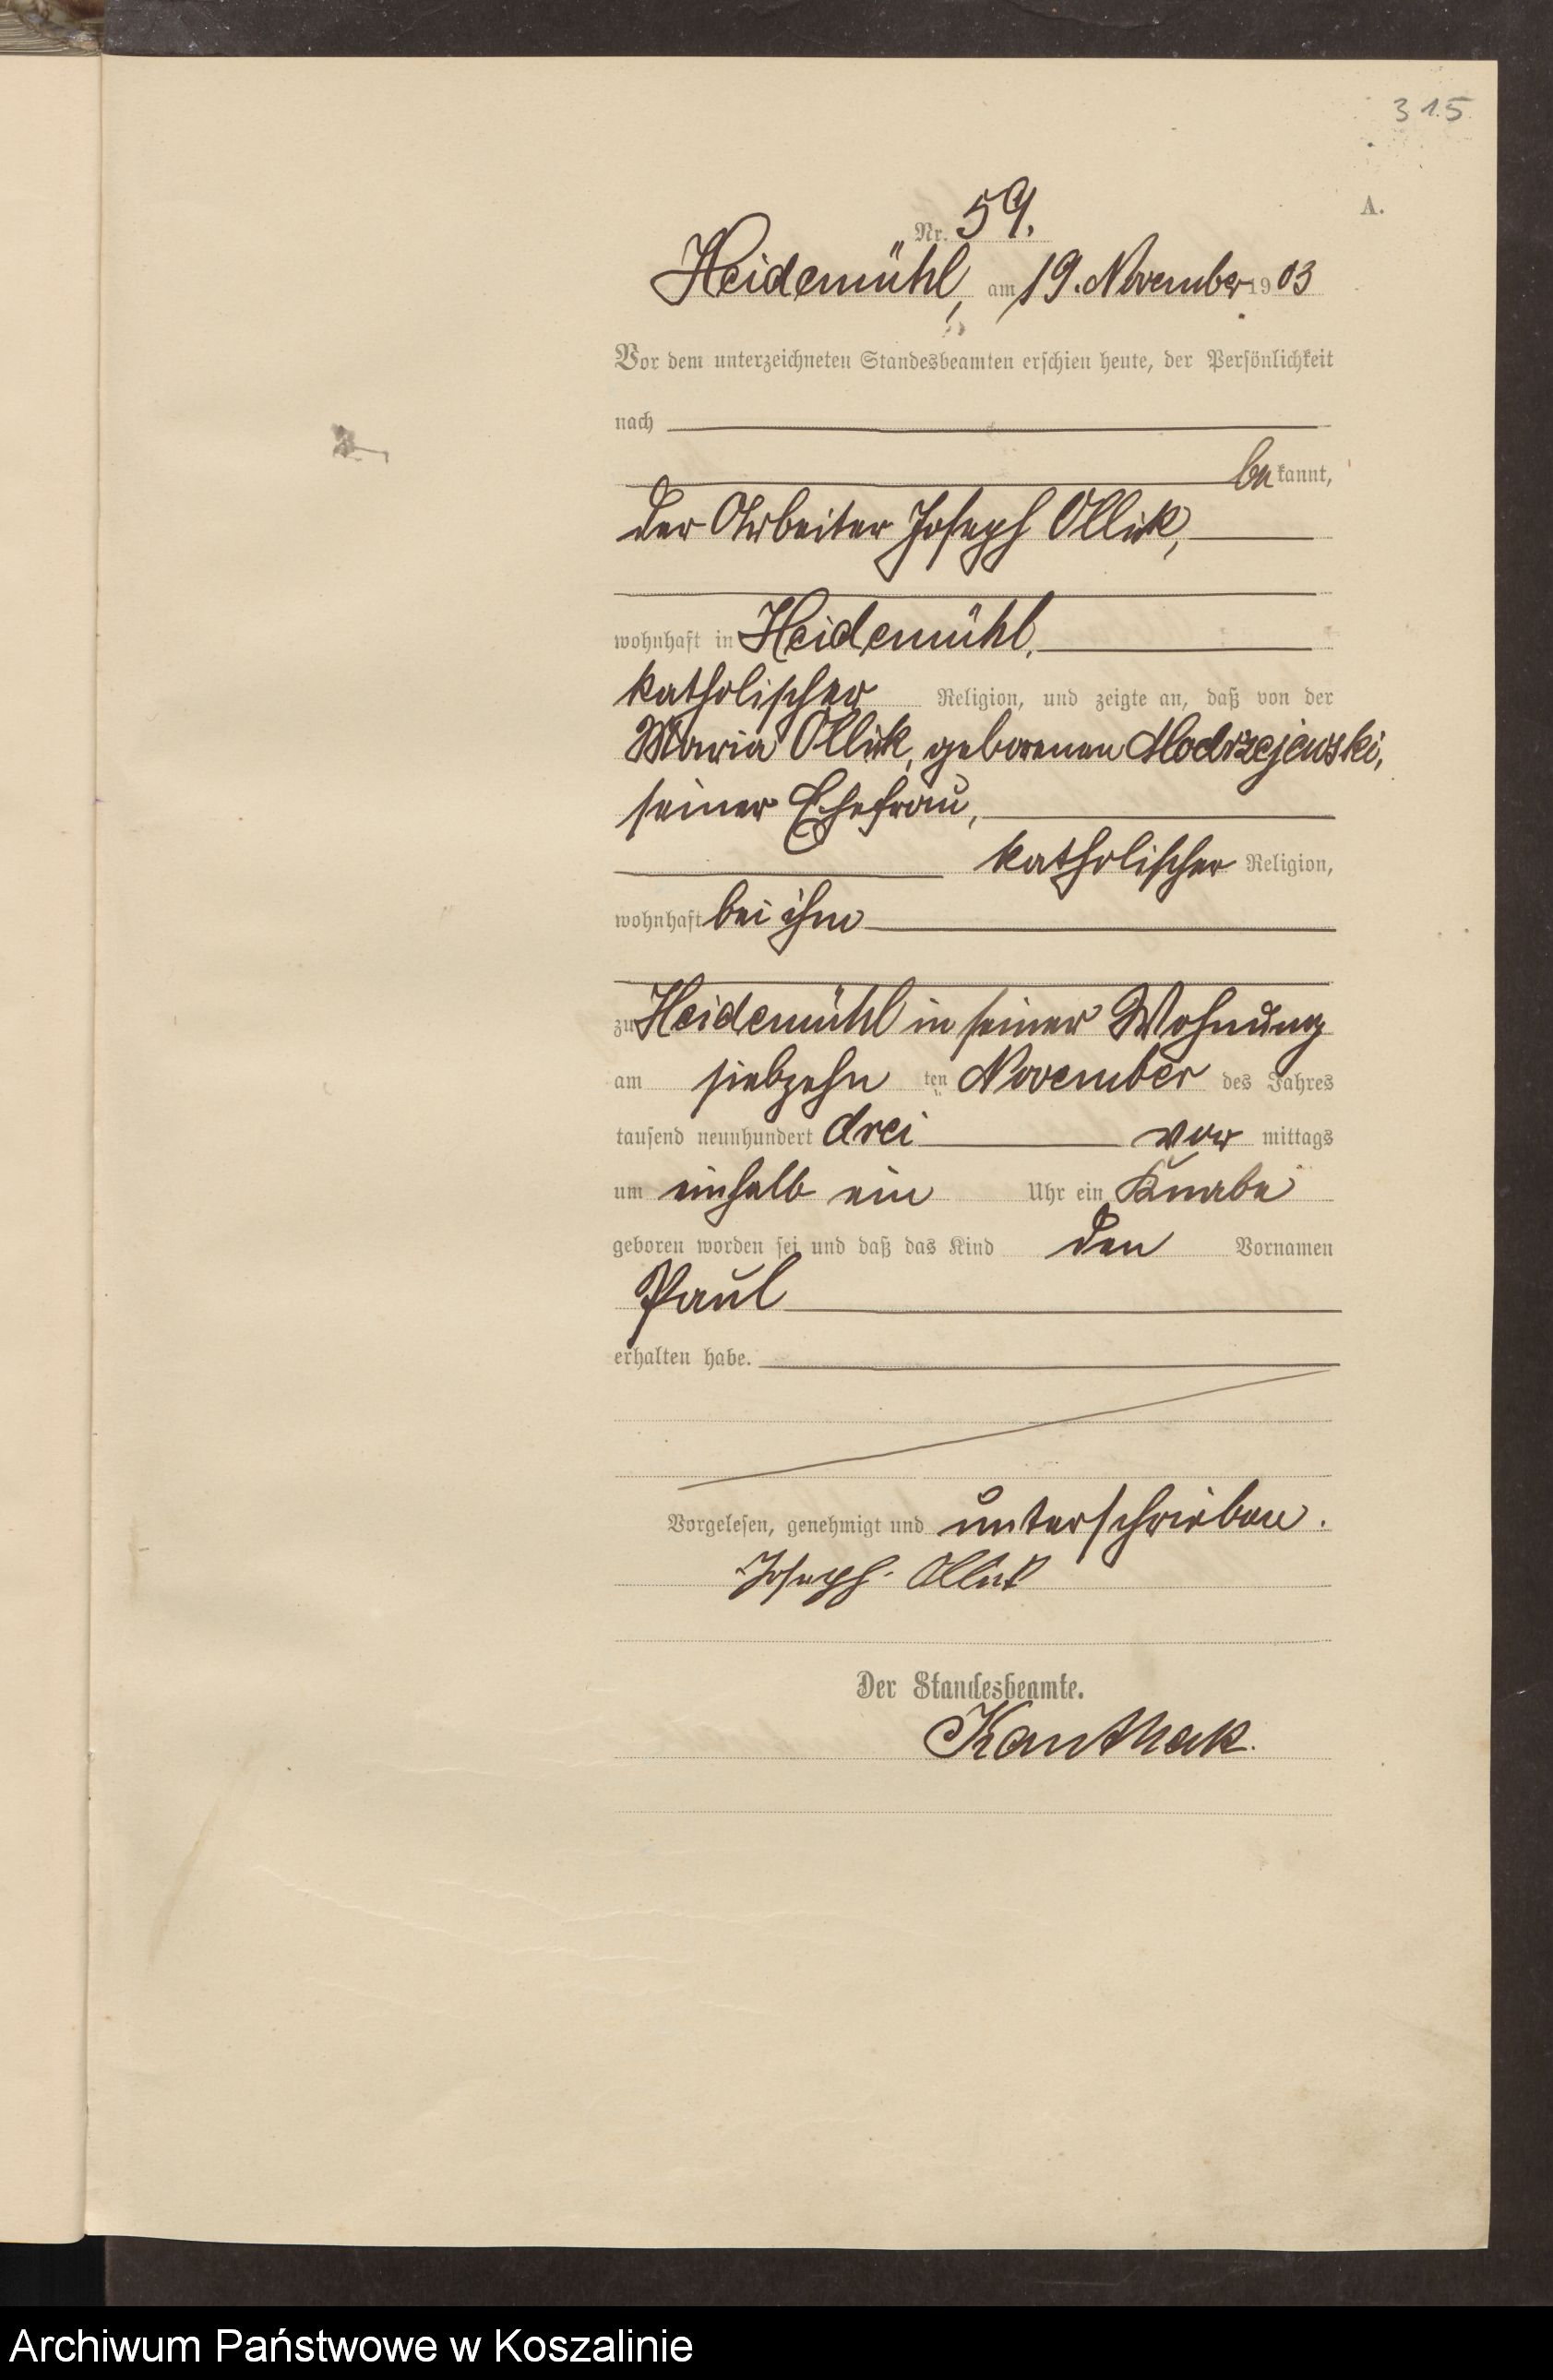 315
A.
Nr. 59.
Heidemühl, am 19. November 1903
Vor dem unterzeichneten Standesbeamten erschien heute, der Persönlichkeit
nach
bekannt,
der Arbeiter Joseph Ollik,
wohnhaft in Heidemühl,
katholischer Religion, und zeigte an, daß von der
Maria Ollik, geborenen Modrzejewski,
seiner Ehefrau,
katholischer Religion,
wohnhaft bei ihm
zu Heidemühl in seiner Wohnung
am siebzehn ten November des Jahres
tausend neunhundert drei vor mittags
um einhalb ein Uhr ein Knabe
geboren worden sei und daß das Kind den Vornamen
Paul
erhalten habe.
Vorgelesen, genehmigt und unterschrieben.
Joseph Ollik
Der Standesbeamte.
Kanthak.
Archiwum Państwowe w Koszalinie